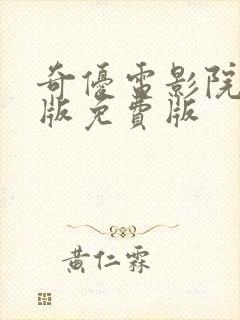 奇優雷影院
版免費版
黃仁霖